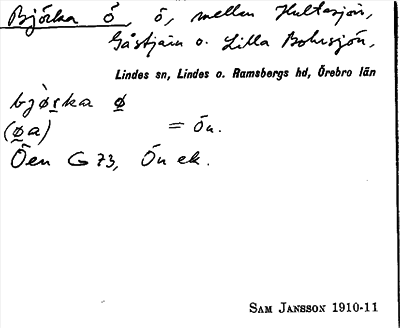 Björka ö, ö, mellan Hultasjön,
Gåstjärn o. Lilla Bohrsjön,
Lindes sn, Lindes o. Ramsbergs hd, Örebro län
ø
(øa) = Ön.
Öen G 73, Ön ek.
SAM JANSSON 1910-11